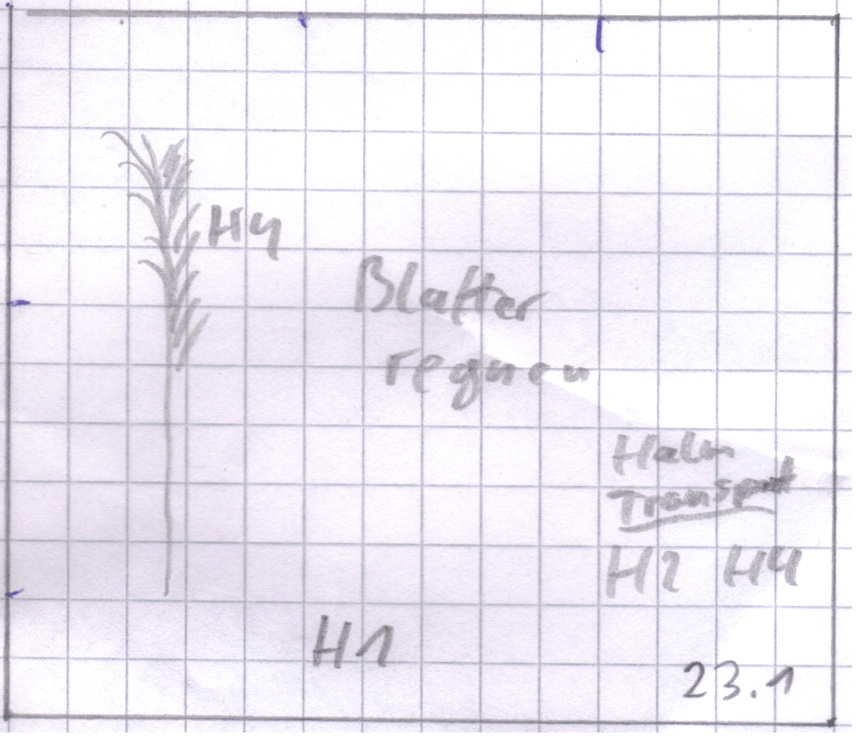 H4
Blatter
regnen
Halm
Transport
H2 H4
H1
23.1